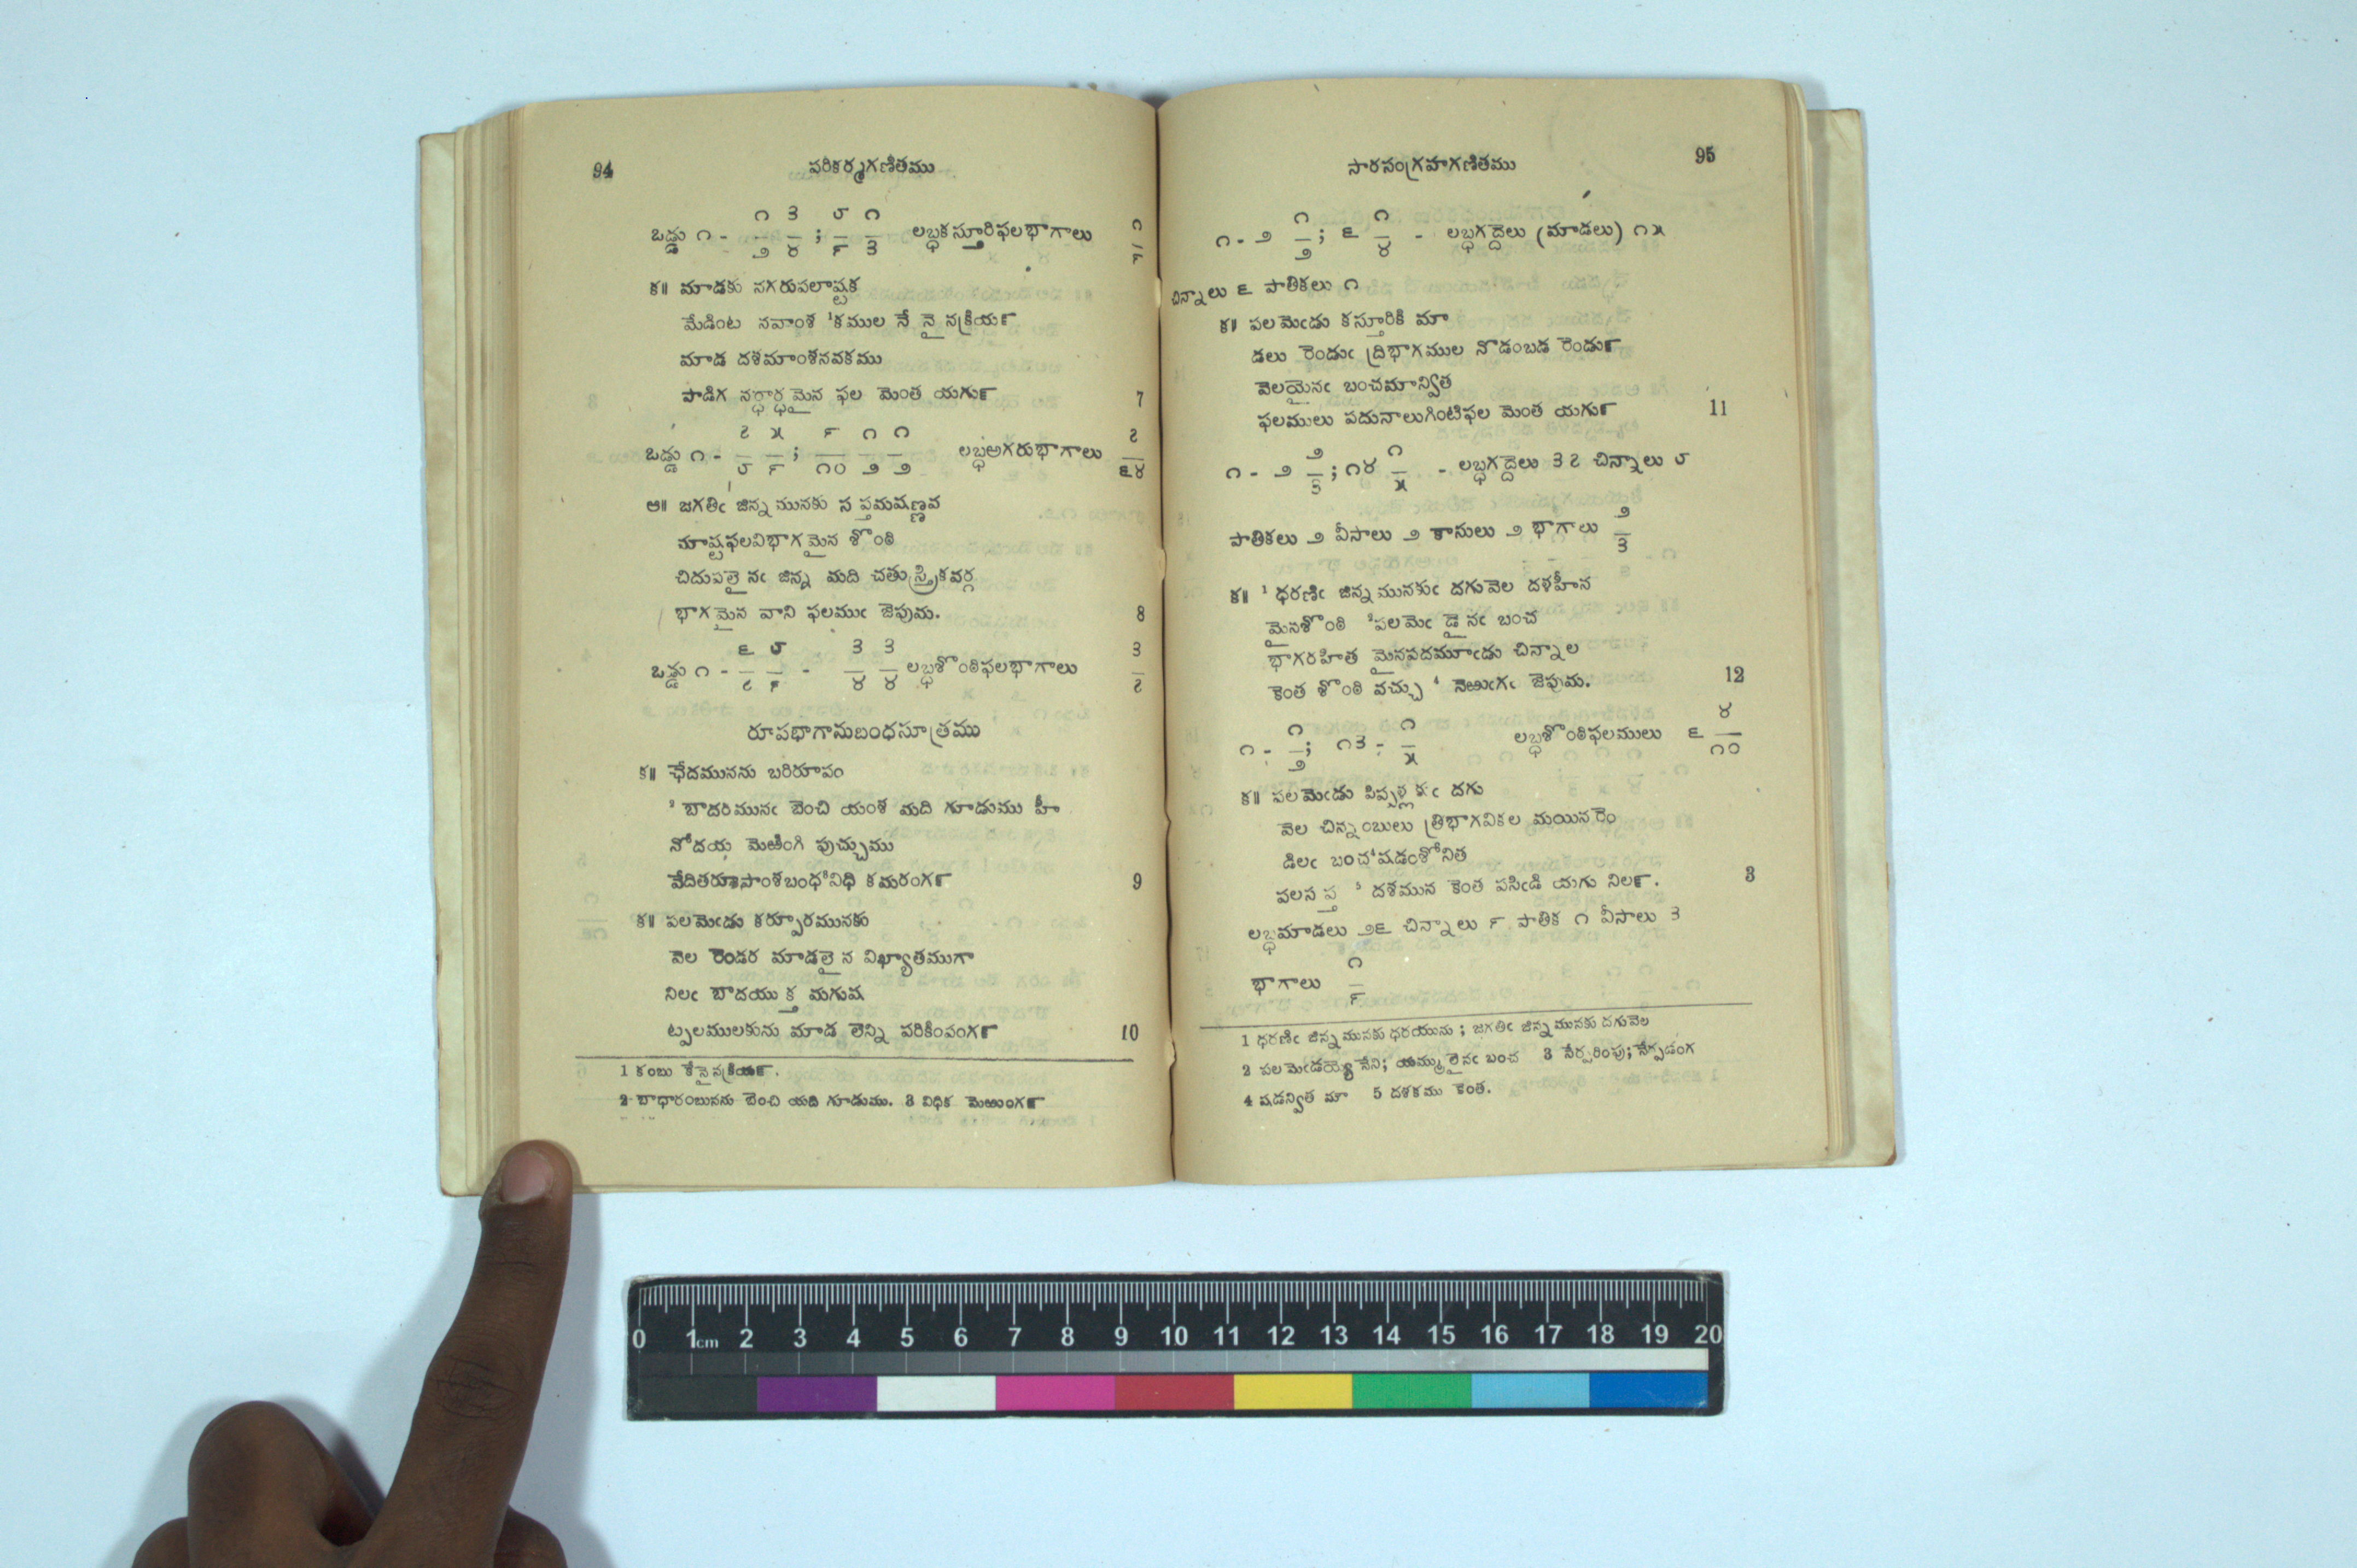 94 పరికర్మగణితము
౧ ౩ ౮ ౧
ఒడ్డు ౧ - — — ; — — లబ్ధకస్తూరిఫలభాగాలు
౨ ౪ ౯ ౩
క॥ మాడకు నగరుపలాష్టక
మేడింట నవాంశ ¹కముల నే నై నక్రియ౯
మాడ దశమాంశనవకము
పాడిగ నర్ధార్ధమైన ఫల మెంత యగు౯ 7
౭ ౫ ౯ ౧ ౧ ౭
ఒడ్డు ౧ - — — ; — — — లబ్ధఅగరుభాగాలు —
౮ ౯ ౧౦ ౨ ౨ ౬౪
ఆ॥ జగతిఁ జిన్నమునకు సప్తమషణ్ణవ
మాష్టఫలవిభాగమైన శొంఠి
చిదుపలై నఁ జిన్న మది చతుస్త్రికవర్గ
భాగమైన వాని ఫలముఁ జెపుమ. 8
౬ ౮ ౩ ౩ ౩
ఒడ్డు ౧ - — — - — — లబ్ధశొంఠిఫలభాగాలు —
౭ ౯ ౪ ౪ ౭
రూపభాగానుబంధసూత్రము
క॥ ఛేదమునను బరిరూపం
² బాదరిమునఁ బెంచి యంశ మది గూడుము హీ
నోదయ మెఱింగి పుచ్చుము
వేదితరూపాంశబంధ³నిధి కమరంగ౯ 9
క॥ పలమెఁడు కర్పూరమునకు
వెల రెండర మాడలై న విఖ్యాతముగా
నిలఁ బాదయుక్త మగుష
ట్పలములకును మాడ లెన్ని పరికింపంగ౯ 10
1 కంబు కేనైనక్రియ౯.
2 బాధారంబునను బెంచి యది గూడుము. 3 విధిక మెఱుంగ౯
సారసంగ్రహగణితము 95
౧ ౧
౧ - ౨ — ; ౬ — - లబ్ధగద్దెలు (మాడలు) ౧౫
౨ ౪
చిన్నాలు ౬ పాతికలు ౧
క॥ పలమెఁడు కస్తూరికి మా
డలు రెండుఁ ద్రిభాగముల నొడంబడ రెండు౯
వెలయైనఁ బంచమాన్విత
ఫలములు పదునాలుగింటిఫల మెంత యగు౯ 11
౨ ౧
౧ - ౨ — ; ౧౪ — - లబ్ధగద్దెలు ౩౭ చిన్నాలు ౮
౩ ౫
పాతికలు ౨ వీసాలు ౨ కాసులు ౨ భాగాలు ౨/౩
క॥ ¹ ధరణిఁ జిన్నమునకుఁ దగువెల దళహీన
మైనశొంఠి ²పలమెఁ డై నఁ బంచ
భాగరహిత మైనపదమూఁడు చిన్నాల
కెంత శొంఠి వచ్చు ⁴ నెఱుఁగఁ జెపుమ. 12
౧ ౧ ౪
౧ - — ; ౧౩ - — లబ్ధశొంఠిఫలములు ౬ —
౨ ౫ ౧౦
క॥ పలమెఁడు పిప్పళ్లకుఁ దగు
వెల చిన్నంబులు త్రిభాగవికల మయినరెం
డిలఁ బంచ⁴షడంశోనిత
పలసప్త ⁵ దశమున కెంత పసిఁడి యగు నిల౯. 3
లబ్ధమాడలు ౨౬ చిన్నాలు ౯ పాతిక ౧ వీసాలు ౩
భాగాలు ౧/౯
1 ధరణిఁ జిన్నమునకు ధరయును ; జగతిఁ జిన్నమునకు దగువెల
2 పలమెఁడయ్యె నేని; యమ్ములైనఁ బంచ 3 నేర్పరింపు; నేర్పడంగ
4 షడన్విత మా 5 దశకము కెంత.
0 1cm 2 3 4 5 6 7 8 9 10 11 12 13 14 15 16 17 18 19 20